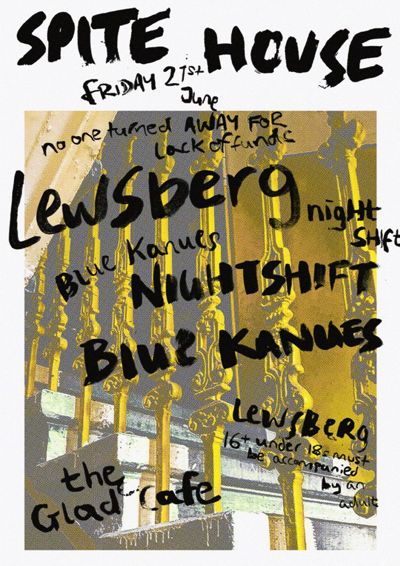 SPITE HOUSE
FRIDAY 21st
June
no one turned AWAY FOR
Lack of funds
Lewsberg
night
SHIft
Blue Kanues
NIGHTSHIFT
Blue KANUES
LEWSBERG
16+ under 18s must
be accompanied
by an
adult
the
Glad Cafe